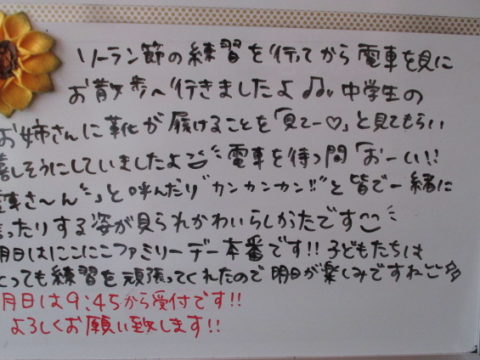 ソーラン節の練習を行ってから電車を見に
お散歩へ行きましたよ♫♩中学生の
お姉さんに靴が履けることを「見てー♡」と見てもらい
嬉しそうにしていましたよ 電車を待つ間「おーい!!
電車さ〜ん」と呼んだり"カンカンカン!!"と皆で一緒に
言ったりする姿が見られかわいらしかったです
明日はにこにこファミリーデー本番です!!子どもたちは
とっても練習を頑張ってくれたので明日が楽しみですね
明日は9:45から受付です!!
よろしくお願い致します!!